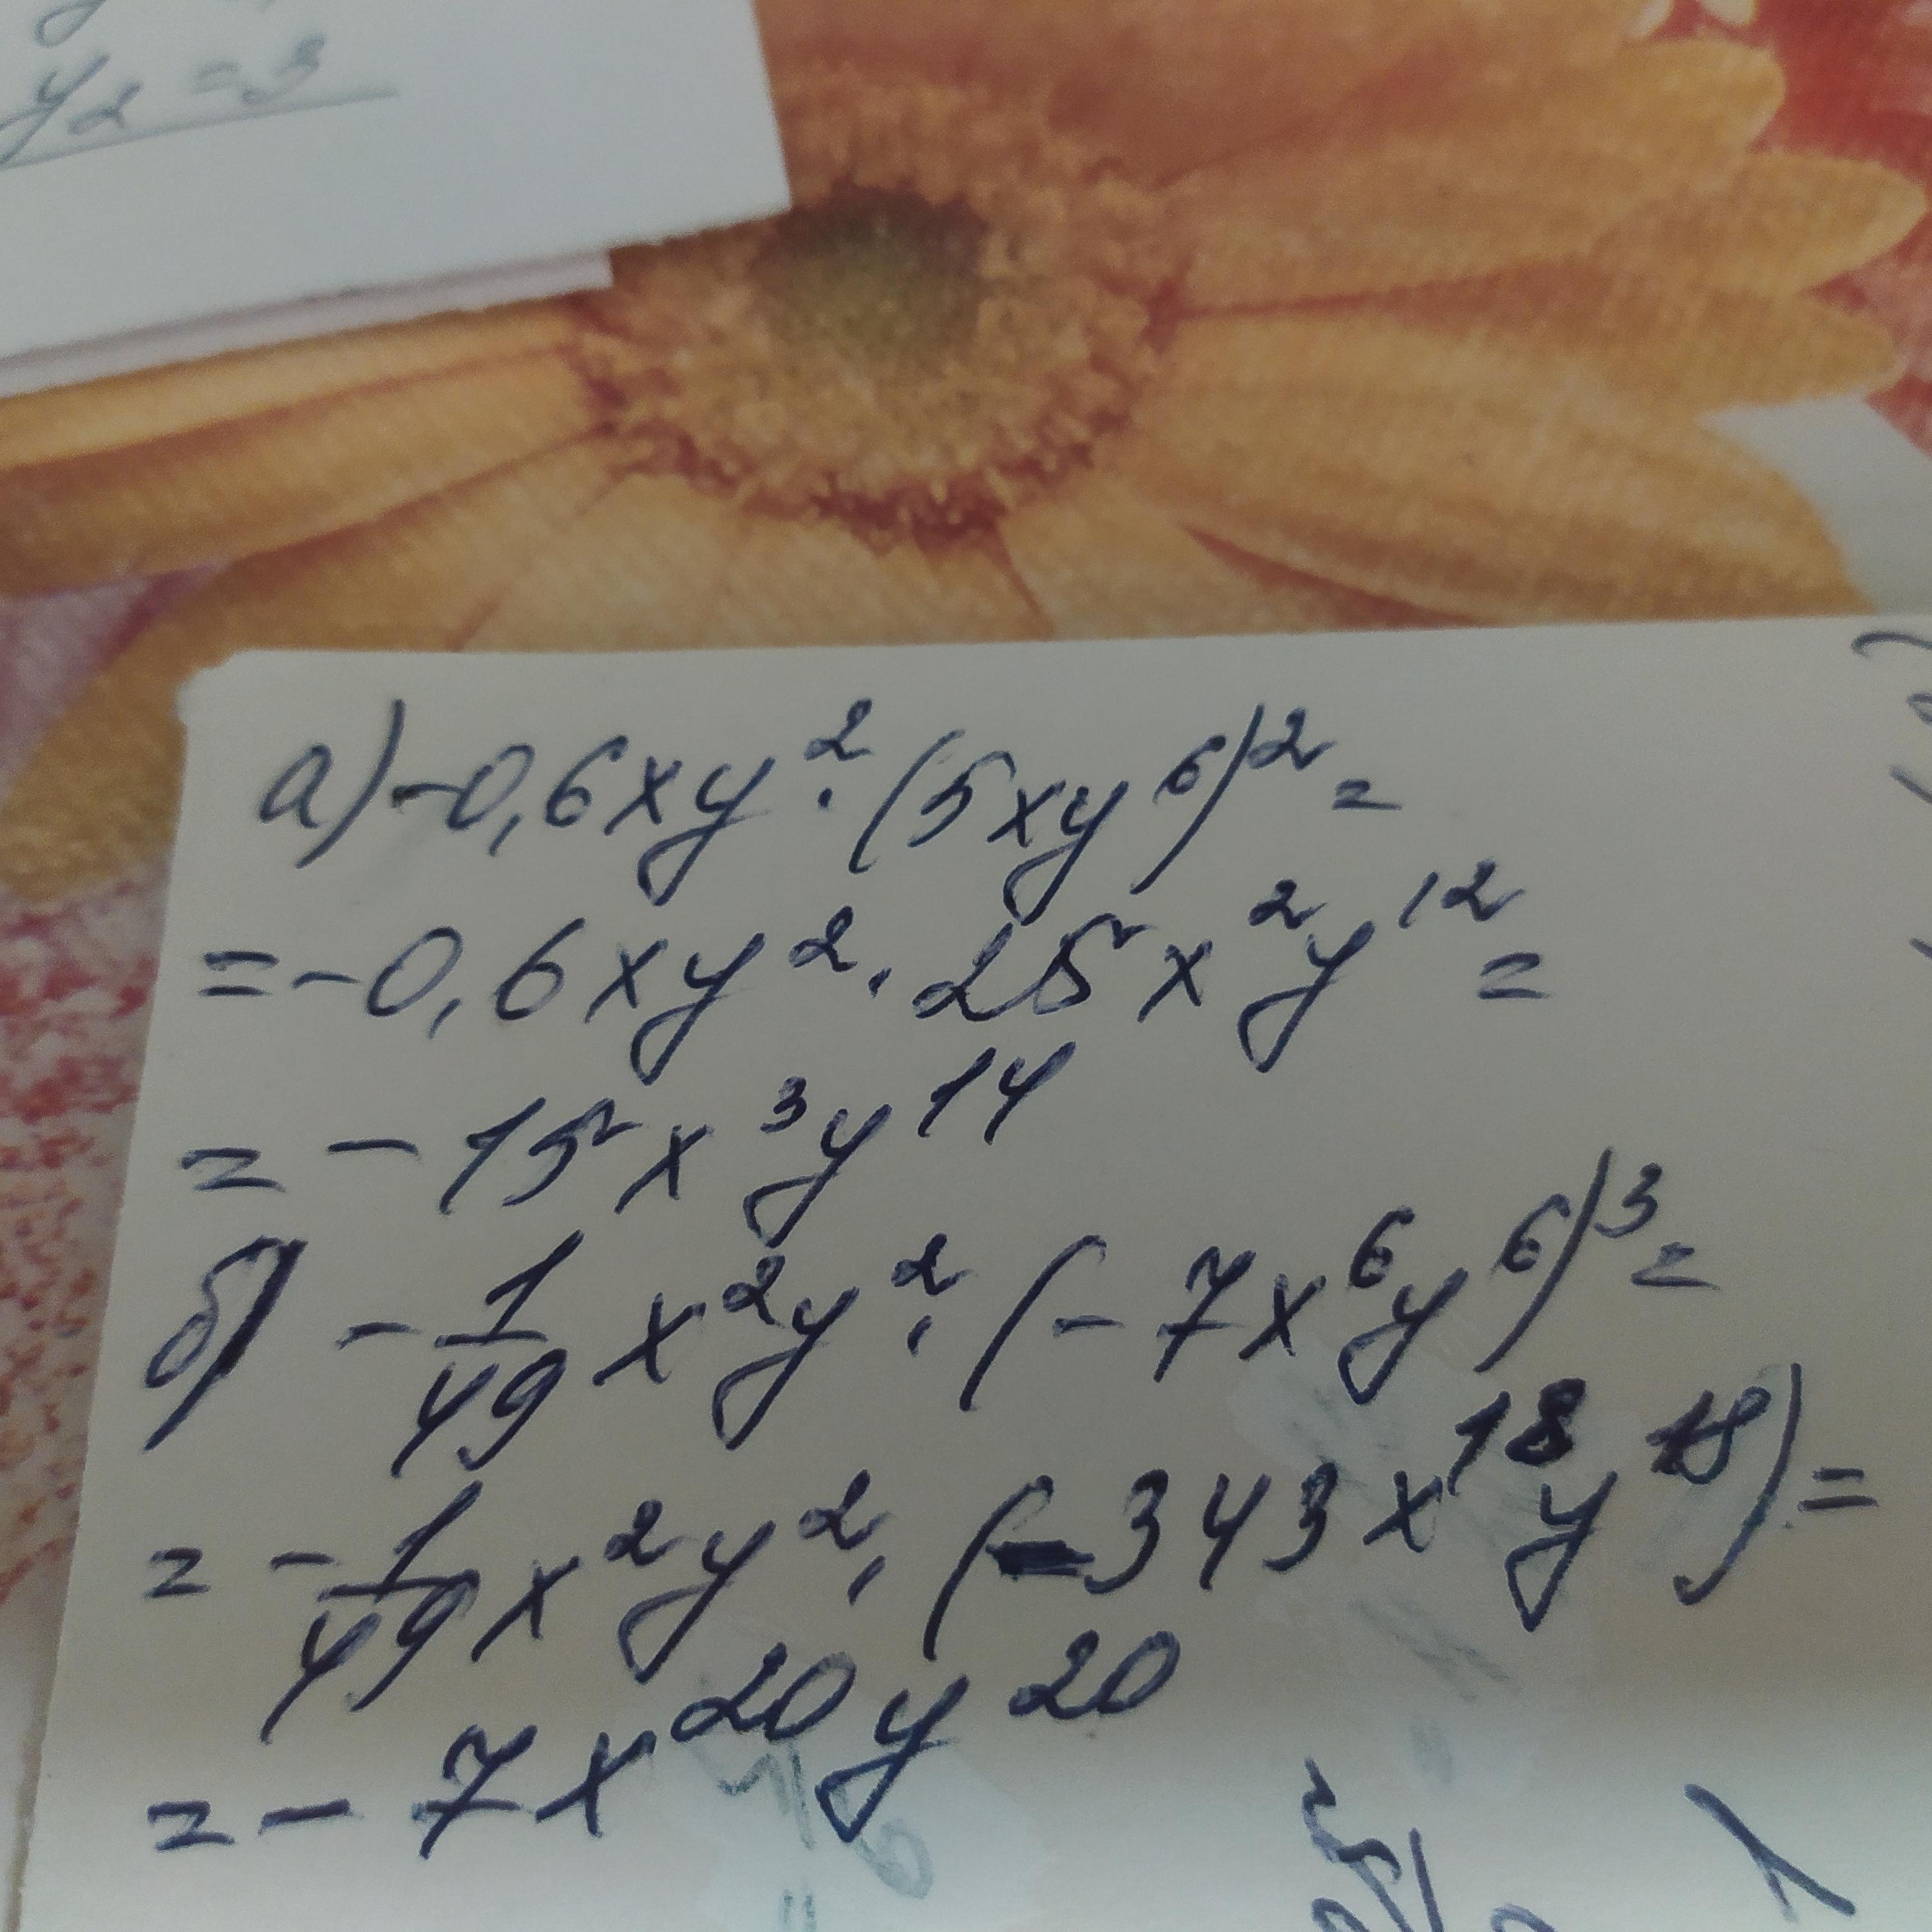 y₂ = 3
а) -0,6xy²·(5xy⁶)² =
= -0,6xy²·25x²y¹² =
= -15x³y¹⁴
б) -1/49 x²y²·(-7x⁶y⁶)³ =
= -1/49 x²y²·(-343x¹⁸y¹⁸) =
= -7x²⁰y²⁰